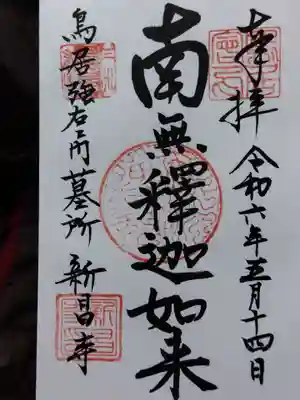 奉拝 令和六年五月十四日
南無釋迦如来
鳥居強右ヱ門墓所 新昌寺